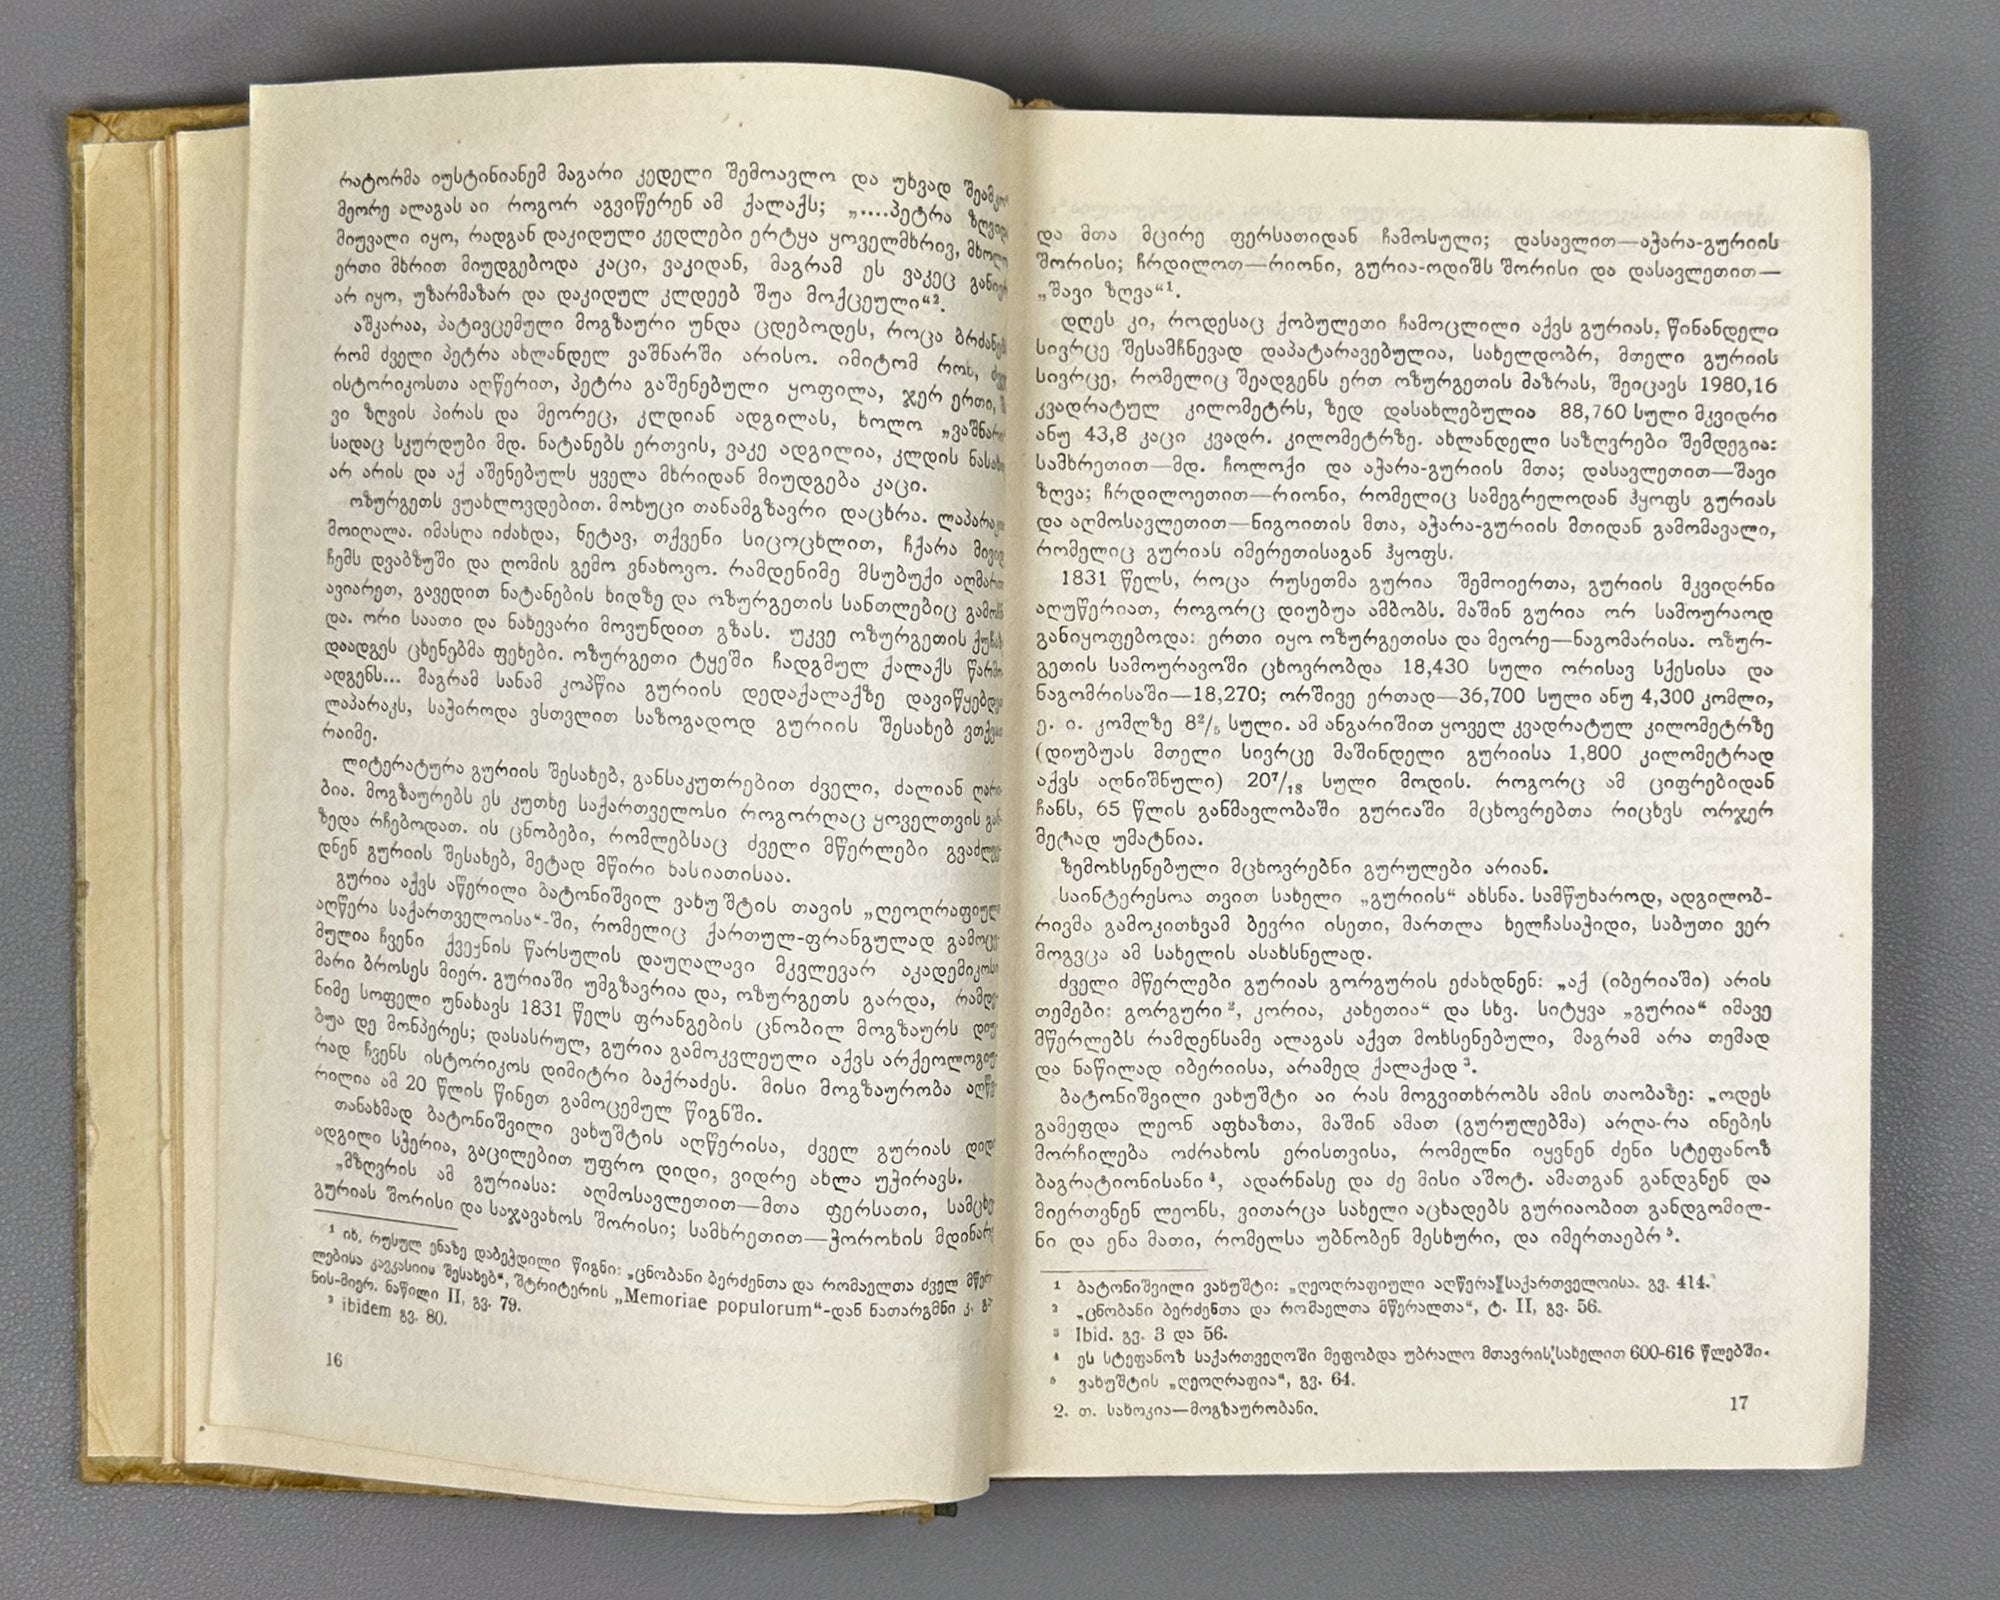 რატორმა იუსტინიანემ მაგარი კედელი შემოავლო და უხვად
მეორე ალაგას აი როგორ აგვიწერენ ამ ქალაქს; „....პეტრა
მიუვალი იყო, რადგან დაკიდული კედლები ერტყა ყოველმხრივ,
ერთი მხრით მიუდგებოდა კაცი, ვაკიდან, მაგრამ ეს ვაკეც
არ იყო, უზარმაზარ და დაკიდულ კლდეებ შუა მოქცეული“².
აშკარაა, პატივცემული მოგზაური უნდა ცდებოდეს, როცა
რომ ძველი პეტრა ახლანდელ ვაშნარში არისო. იმიტომ რომ,
ისტორიკოსთა აღწერით, პეტრა გაშენებული ყოფილა, ჯერ ერთი,
ვი ზღვის პირას და მეორეც, კლდიან ადგილას, ხოლო
სადაც სკურდუბი მდ. ნატანებს ერთვის, ვაკე ადგილია, კლდის
არ არის და აქ აშენებულს ყველა მხრიდან მიუდგება კაცი.
ოზურგეთს ვუახლოვდებით. მოხუცი თანამგზავრი დაცხრა.
მოიღალა. იმასღა იძახდა, ნეტავ, თქვენი სიცოცხლით, ჩქარა
ჩემს დვაბზუში და ღომის გემო ვნახოვო. რამდენიმე მსუბუქი
ავიარეთ, გავედით ნატანების ხიდზე და ოზურგეთის სანთლებიც
და. ორი საათი და ნახევარი მოვუნდით გზას. უკვე ოზურგეთის
დაადგეს ცხენებმა ფეხები. ოზურგეთი ტყეში ჩადგმულ ქალაქს
ადგენს... მაგრამ სანამ კოპწია გურიის დედაქალაქზე
ლაპარაკს, საჭიროდა ვსთვლით საზოგადოდ გურიის შესახებ
რაიმე.
ლიტერატურა გურიის შესახებ, განსაკუთრებით ძველი, ძალიან
ბია. მოგზაურებს ეს კუთხე საქართველოსი როგორღაც ყოველთვის
ზედა რჩებოდათ. ის ცნობები, რომლებსაც ძველი მწერლები
დნენ გურიის შესახებ, მეტად მწირი ხასიათისაა.
გურია აქვს აწერილი ბატონიშვილ ვახუშტის თავის
აღწერა საქართველოისა“-ში, რომელიც ქართულ-ფრანგულად
მულია ჩვენი ქვეყნის წარსულის დაუღალავი მკვლევარ
მარი ბროსეს მიერ. გურიაში უმგზავრია და, ოზურგეთს გარდა,
ნიმე სოფელი უნახავს 1831 წელს ფრანგების ცნობილ მოგზაურს
ბუა დე მონპერეს; დასასრულ, გურია გამოკვლეული აქვს
რად ჩვენს ისტორიკოს დიმიტრი ბაქრაძეს. მისი მოგზაურობა
რილია ამ 20 წლის წინეთ გამოცემულ წიგნში.
თანახმად ბატონიშვილი ვახუშტის აღწერისა, ძველ გურიას
ადგილი სჭერია, გაცილებით უფრო დიდი, ვიდრე ახლა უჭირავს.
„მზღვრის ამ გურიასა: აღმოსავლეთით—მთა ფერსათი,
გურიას შორისი და საჯავახოს შორისი; სამხრეთით—ჭოროხის
¹ იხ. რუსულ ენაზე დაბეჭდილი წიგნი: „ცნობანი ბერძენთა და რომაელთა ძველ
ლებისა კავკასიის შესახებ“, შტრიტერის „Memoriae populorum“-დან ნათარგმნი კ.
ნის-მიერ. ნაწილი II, გვ. 79.
² ibidem გვ. 80.
16
და მთა მცირე ფერსათიდან ჩამოსული; დასავლით—აჭარა-გურიის
შორისი; ჩრდილოთ—რიონი, გურია-ოდიშს შორისი და დასავლეთით—
„შავი ზღვა“¹.
დღეს კი, როდესაც ქობულეთი ჩამოცლილი აქვს გურიას, წინანდელი
სივრცე შესამჩნევად დაპატარავებულია, სახელდობრ, მთელი გურიის
სივრცე, რომელიც შეადგენს ერთ ოზურგეთის მაზრას, შეიცავს 1980,16
კვადრატულ კილომეტრს, ზედ დასახლებულია 88,760 სული მკვიდრი
ანუ 43,8 კაცი კვადრ. კილომეტრზე. ახლანდელი საზღვრები შემდეგია:
სამხრეთით—მდ. ჩოლოქი და აჭარა-გურიის მთა; დასავლეთით—შავი
ზღვა; ჩრდილოეთით—რიონი, რომელიც სამეგრელოდან ჰყოფს გურიას
და აღმოსავლეთით—ნიგოითის მთა, აჭარა-გურიის მთიდან გამომავალი,
რომელიც გურიას იმერეთისაგან ჰყოფს.
1831 წელს, როცა რუსეთმა გურია შემოიერთა, გურიის მკვიდრნი
აღუწერიათ, როგორც დიუბუა ამბობს. მაშინ გურია ორ სამოურაოდ
განიყოფებოდა: ერთი იყო ოზურგეთისა და მეორე—ნაგომარისა. ოზურ-
გეთის სამოურავოში ცხოვრობდა 18,430 სული ორისავ სქესისა და
ნაგომრისაში—18,270; ორშივე ერთად—36,700 სული ანუ 4,300 კომლი,
ე. ი. კომლზე 8²/₅ სული. ამ ანგარიშით ყოველ კვადრატულ კილომეტრზე
(დიუბუას მთელი სივრცე მაშინდელი გურიისა 1,800 კილომეტრად
აქვს აღნიშნული) 20⁷/₁₈ სული მოდის. როგორც ამ ციფრებიდან
ჩანს, 65 წლის განმავლობაში გურიაში მცხოვრებთა რიცხვს ორჯერ
მეტად უმატნია.
ზემოხსენებული მცხოვრებნი გურულები არიან.
საინტერესოა თვით სახელი „გურიის“ ახსნა. სამწუხაროდ, ადგილობ-
რივმა გამოკითხვამ ბევრი ისეთი, მართლა ხელჩასაჭიდი, საბუთი ვერ
მოგვცა ამ სახელის ასახსნელად.
ძველი მწერლები გურიას გორგურის ეძახდნენ: „აქ (იბერიაში) არის
თემები: გორგური², კორია, კახეთია“ და სხვ. სიტყვა „გურია“ იმავე
მწერლებს რამდენსამე ალაგას აქვთ მოხსენებული, მაგრამ არა თემად
და ნაწილად იბერიისა, არამედ ქალაქად³.
ბატონიშვილი ვახუშტი აი რას მოგვითხრობს ამის თაობაზე: „ოდეს
გამეფდა ლეონ აფხაზთა, მაშინ ამათ (გურულებმა) არღა-რა ინებეს
მორჩილება ოძრახოს ერისთვისა, რომელნი იყვნენ ძენი სტეფანოზ
ბაგრატიონისანი⁴, ადარნასე და ძე მისი აშოტ. ამათგან განდგნენ და
მიერთვნენ ლეონს, ვითარცა სახელი აცხადებს გურიაობით განდგომილ-
ნი და ენა მათი, რომელსა უბნობენ მესხური, და იმერთაებრ⁵.
¹ ბატონიშვილი ვახუშტი: „ღეოღრაფიული აღწერა საქართველოისა. გვ. 414.
² „ცნობანი ბერძენთა და რომაელთა მწერალთა“, ტ. II, გვ. 56.
³ Ibid. გვ. 3 და 56.
⁴ ეს სტეფანოზ საქართველოში მეფობდა უბრალო მთავრის სახელით 600-616 წლებში.
⁵ ვახუშტის „ღეოღრაფია“, გვ. 64.
2. თ. სახოკია—მოგზაურობანი.
17